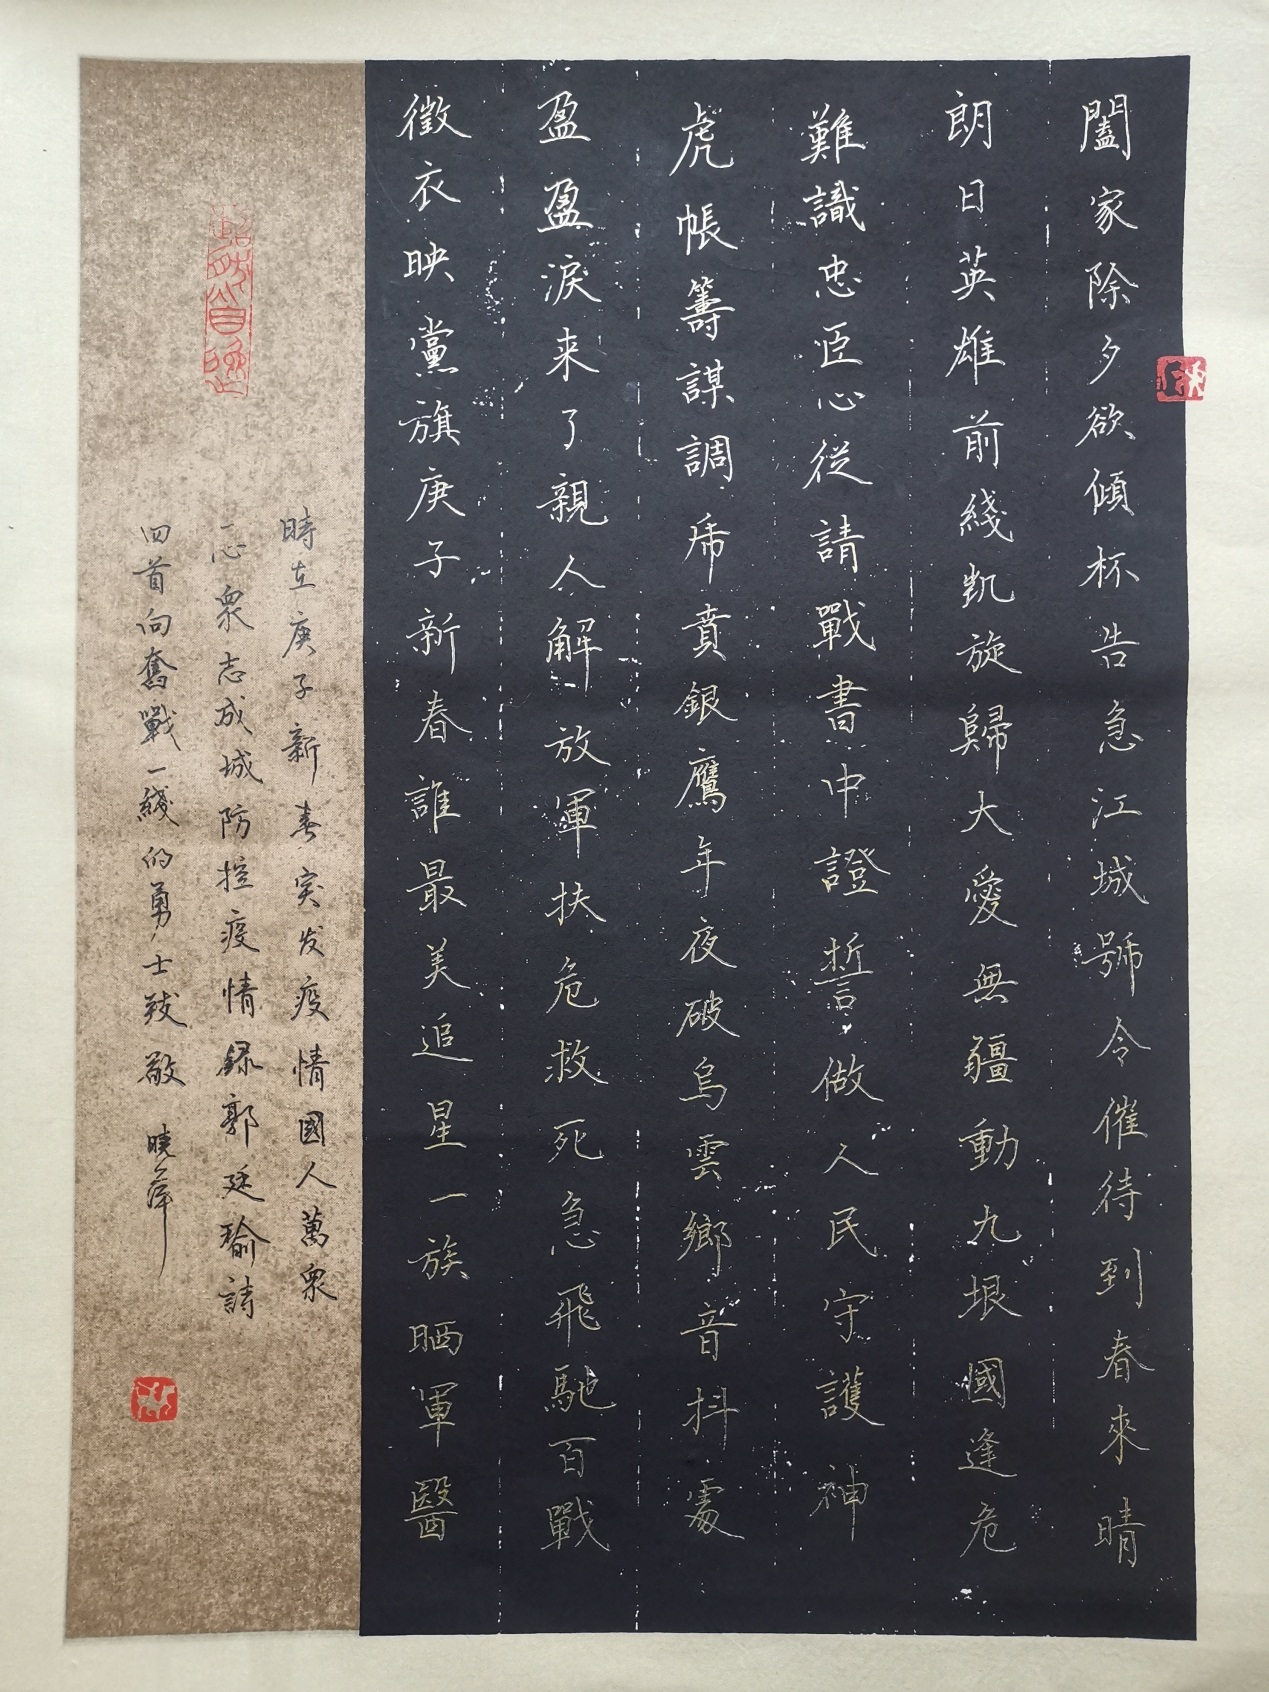 闔家除夕欲傾杯告急江城號令催待到春來晴
朗日英雄前綫凱旋歸大愛無疆動九垠國逢危
難識忠臣心從請戰書中證誓做人民守護神
虎帳籌謀調虎賁銀鷹年夜破烏雲鄉音抖處
盈盈淚来了親人解放軍扶危救死急飛馳百戰
徵衣映黨旗庚子新春誰最美追星一族晒軍醫
時在庚子新春突发疫情國人萬衆
一心衆志成城防控疫情録郭廷瑜詩
四首向奮戰一綫的勇士致敬 曉萍